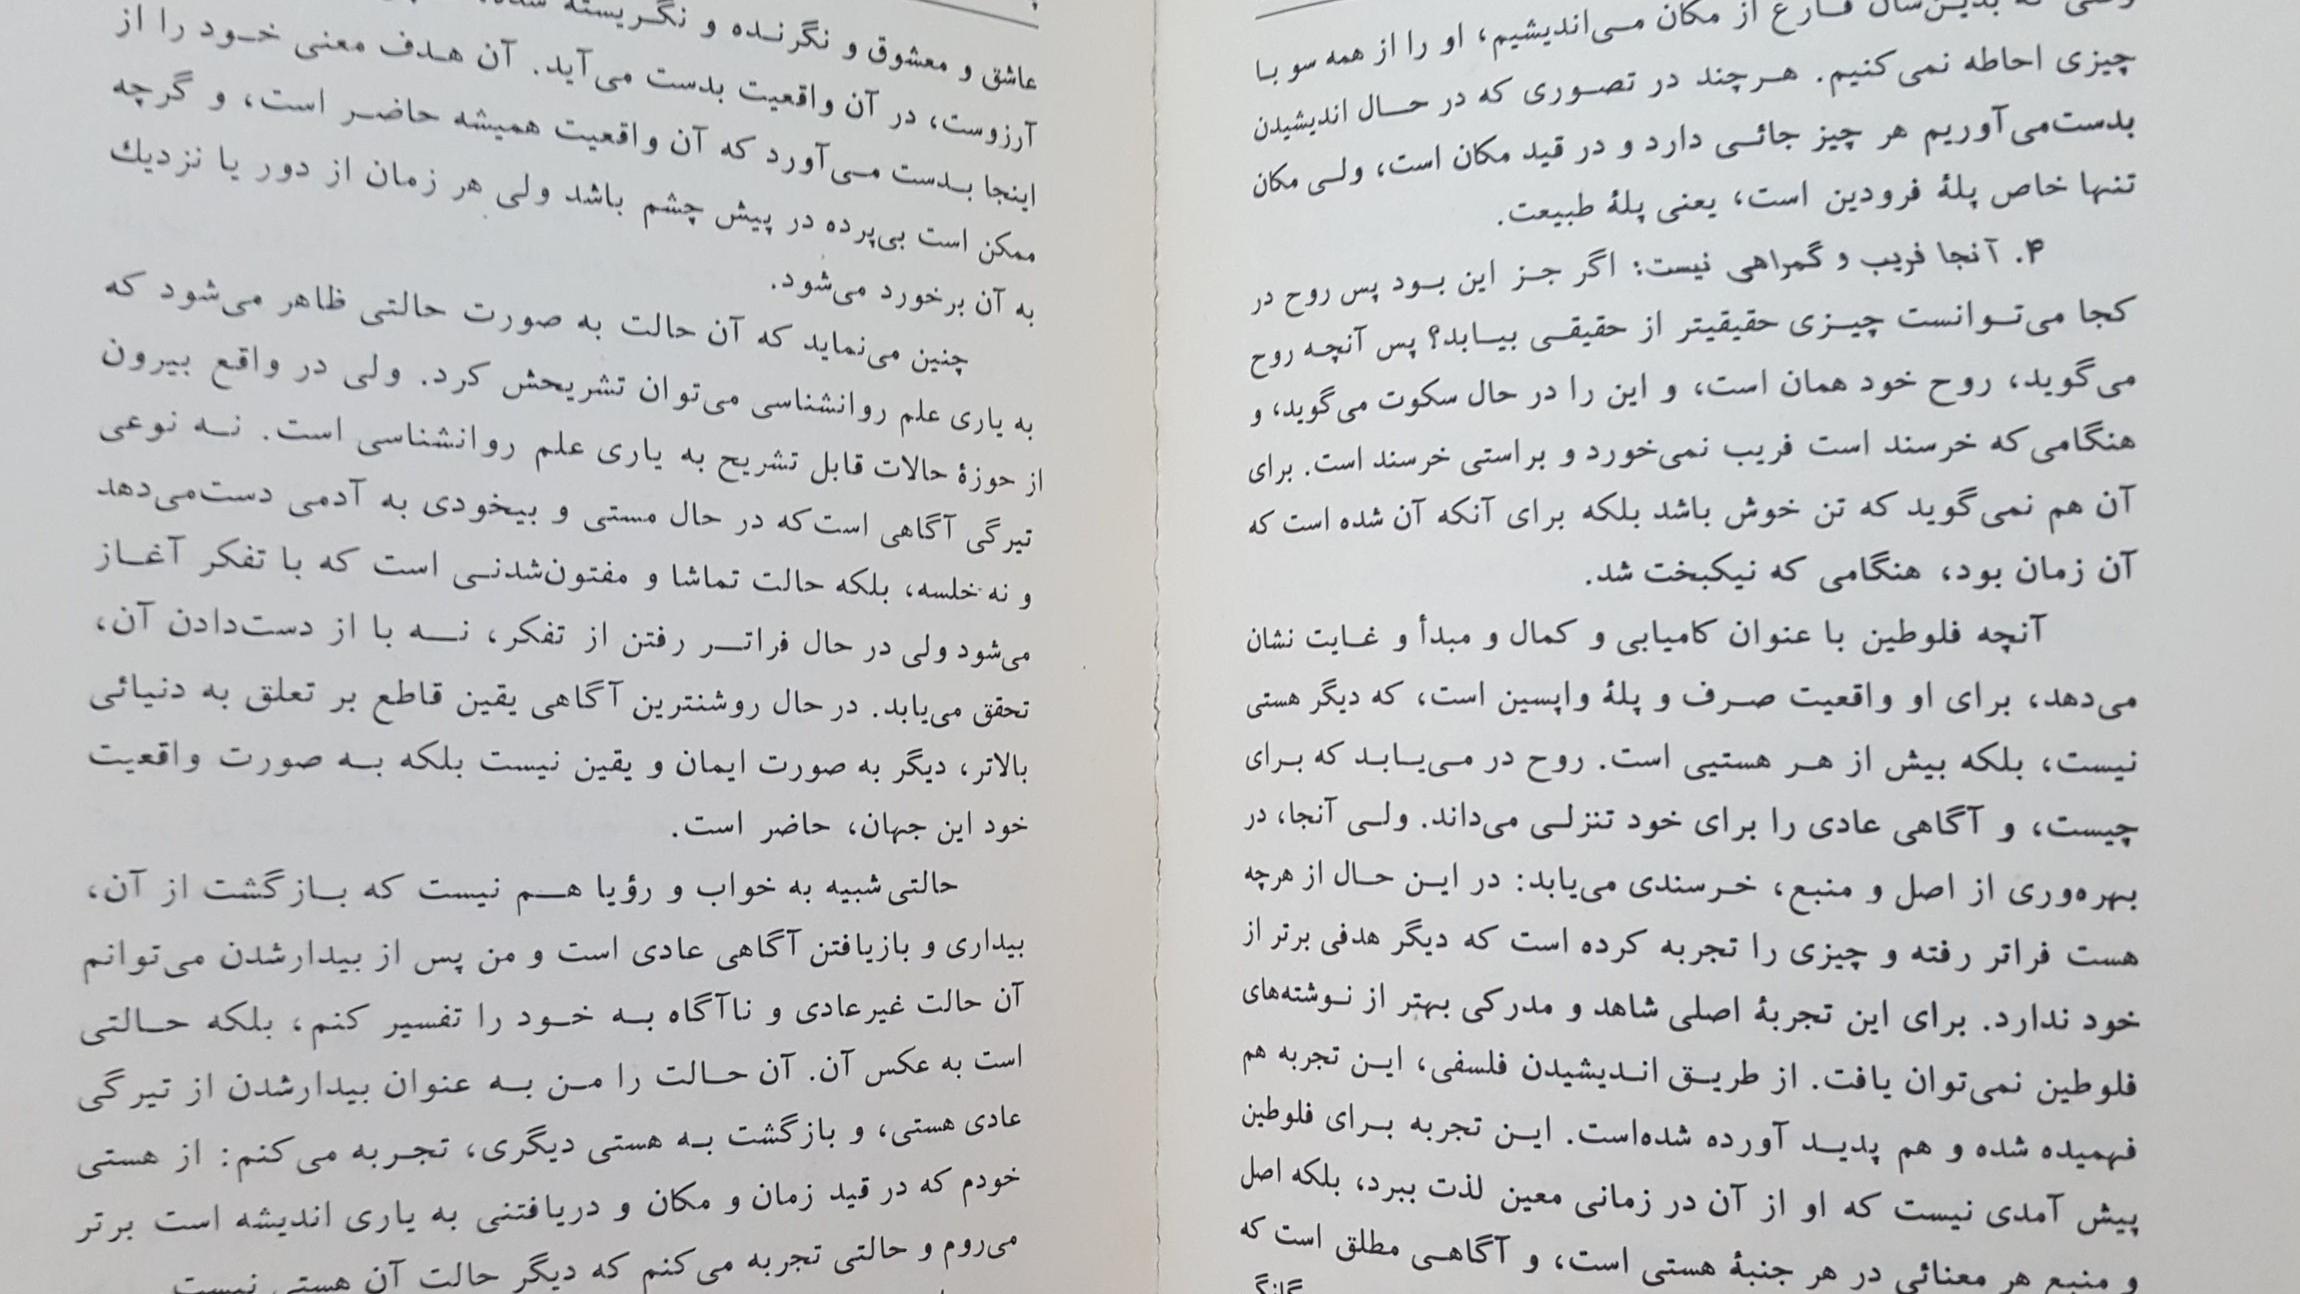 وقتی که بدین‌سان فارغ از مکان می‌اندیشیم، او را از همه سو با
چیزی احاطه نمی‌کنیم. هرچند در تصوری که در حال اندیشیدن
بدست‌می‌آوریم هر چیز جائی دارد و در قید مکان است، ولی مکان
تنها خاص پلهٔ فرودین است، یعنی پلهٔ طبیعت.
۴. آنجا فریب و گمراهی نیست: اگر جز این بود پس روح در
کجا می‌توانست چیزی حقیقیتر از حقیقی بیابد؟ پس آنچه روح
می‌گوید، روح خود همان است، و این را در حال سکوت می‌گوید، و
هنگامی‌که خرسند است فریب نمی‌خورد و براستی خرسند است. برای
آن هم نمی‌گوید که تن خوش باشد بلکه برای آنکه آن شده است که
آن زمان بود، هنگامی که نیکبخت شد.
آنچه فلوطین با عنوان کامیابی و کمال و مبدأ و غایت نشان
می‌دهد، برای او واقعیت صرف و پلهٔ واپسین است، که دیگر هستی
نیست، بلکه بیش از هر هستیی است. روح در می‌یابد که برای
چیست، و آگاهی عادی را برای خود تنزلی می‌داند. ولی آنجا، در
بهره‌وری از اصل و منبع، خرسندی می‌یابد: در این حال از هرچه
هست فراتر رفته و چیزی را تجربه کرده است که دیگر هدفی برتر از
خود ندارد. برای این تجربهٔ اصلی شاهد و مدرکی بهتر از نوشته‌های
فلوطین نمی‌توان یافت. از طریق اندیشیدن فلسفی، این تجربه هم
فهمیده شده و هم پدید آورده شده‌است. این تجربه برای فلوطین
پیش آمدی نیست که او از آن در زمانی معین لذت ببرد، بلکه اصل
و منبع هر معنائی در هر جنبهٔ هستی است، و آگاهی مطلق است که
عاشق و معشوق و نگرنده و نگریسته
آرزوست، در آن واقعیت بدست می‌آید. آن هدف معنی خود را از
اینجا بدست می‌آورد که آن واقعیت همیشه حاضر است، و گرچه
ممکن است بی‌پرده در پیش چشم باشد ولی هر زمان از دور یا نزدیك
به آن برخورد می‌شود.
چنین می‌نماید که آن حالت به صورت حالتی ظاهر می‌شود که
به یاری علم روانشناسی می‌توان تشریحش کرد. ولی در واقع بیرون
از حوزهٔ حالات قابل تشریح به یاری علم روانشناسی است. نه نوعی
تیرگی آگاهی است‌که در حال مستی و بیخودی به آدمی دست‌می‌دهد
و نه خلسه، بلکه حالت تماشا و مفتون‌شدنی است که با تفکر آغاز
می‌شود ولی در حال فراتر رفتن از تفکر، نه با از دست‌دادن آن،
تحقق می‌یابد. در حال روشنترین آگاهی یقین قاطع بر تعلق به دنیائی
بالاتر، دیگر به صورت ایمان و یقین نیست بلکه به صورت واقعیت
خود این جهان، حاضر است.
حالتی شبیه به خواب و رؤیا هم نیست که بازگشت از آن،
بیداری و بازیافتن آگاهی عادی است و من پس از بیدارشدن می‌توانم
آن حالت غیرعادی و ناآگاه به خود را تفسیر کنم، بلکه حالتی
است به عکس آن. آن حالت را من به عنوان بیدارشدن از تیرگی
عادی هستی، و بازگشت به هستی دیگری، تجربه می‌کنم: از هستی
خودم که در قید زمان و مکان و دریافتنی به یاری اندیشه است برتر
می‌روم و حالتی تجربه می‌کنم که دیگر حالت آن هستی نیست